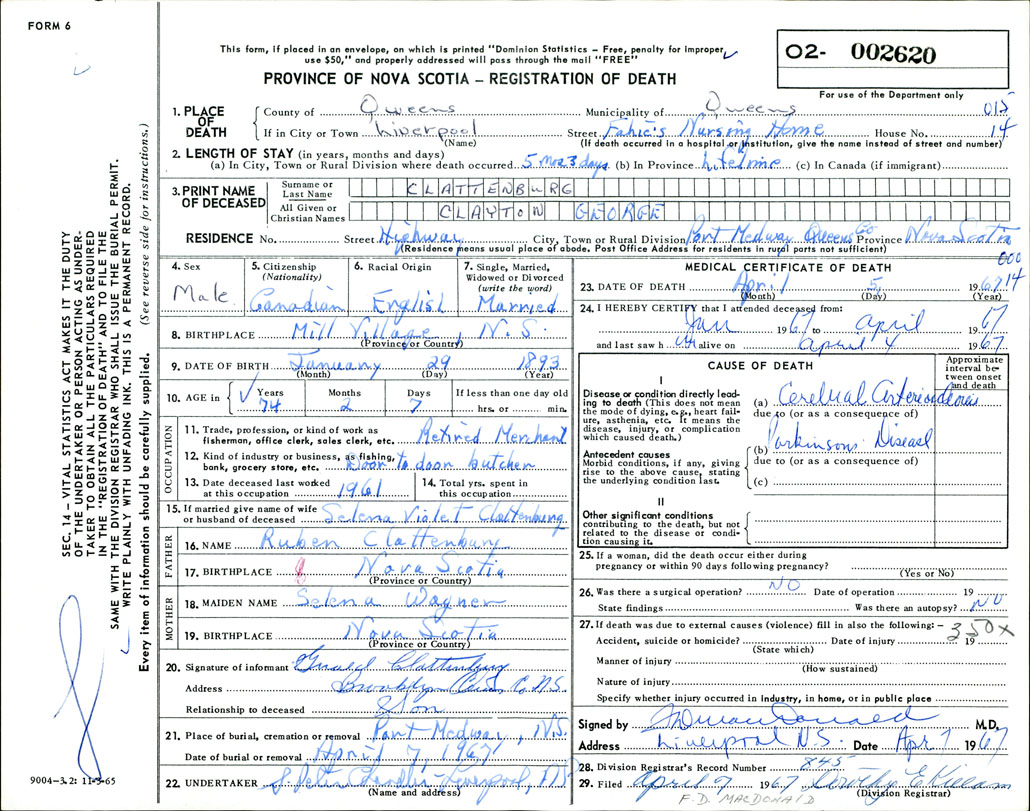 FORM 6
This form, if placed in an envelope, on which is printed "Dominion Statistics – Free, penalty for improper
use $50," and properly addressed will pass through the mail "FREE"
PROVINCE OF NOVA SCOTIA – REGISTRATION OF DEATH
02- 002620
For use of the Department only
SEC. 14 – VITAL STATISTICS ACT MAKES IT THE DUTY
OF THE UNDERTAKER OR PERSON ACTING AS UNDER-
TAKER TO OBTAIN ALL THE PARTICULARS REQUIRED
IN THE "REGISTRATION OF DEATH" AND TO FILE THE
SAME WITH THE DIVISION REGISTRAR WHO SHALL ISSUE THE BURIAL PERMIT.
WRITE PLAINLY WITH UNFADING INK. THIS IS A PERMANENT RECORD.
Every item of information should be carefully supplied. (See reverse side for instructions.)
1. PLACE OF DEATH
County of Queens Municipality of Queens 015
If in City or Town Liverpool Street Fahie's Nursing Home House No. 14
(Name) (If death occurred in a hospital or institution, give the name instead of street and number)
2. LENGTH OF STAY (in years, months and days)
(a) In City, Town or Rural Division where death occurred 5 mos 3 days (b) In Province Lifetime (c) In Canada (if immigrant)
3. PRINT NAME OF DECEASED
Surname or Last Name CLATTENBURG
All Given or Christian Names CLAYTON GEORGE
RESIDENCE No. Street Highway City, Town or Rural Division Port Medway Queens Co Province Nova Scotia
(Residence means usual place of abode. Post Office Address for residents in rural parts not sufficient)
000
14
4. Sex Male
5. Citizenship (Nationality) Canadian
6. Racial Origin English
7. Single, Married, Widowed or Divorced (write the word) Married
8. BIRTHPLACE Mill Village, N.S.
(Province or Country)
9. DATE OF BIRTH January 29 1893
(Month) (Day) (Year)
10. AGE in Years 74 Months 2 Days 7 If less than one day old hrs. or min.
OCCUPATION
11. Trade, profession, or kind of work as fisherman, office clerk, sales clerk, etc. Retired Merchant
12. Kind of industry or business, as fishing, bank, grocery store, etc. Door to door butcher
13. Date deceased last worked at this occupation 1961
14. Total yrs. spent in this occupation
15. If married give name of wife or husband of deceased Selena Violet Clattenburg
FATHER
16. NAME Ruben Clattenburg
17. BIRTHPLACE Nova Scotia
(Province or Country)
MOTHER
18. MAIDEN NAME Selena Wagner
19. BIRTHPLACE Nova Scotia
(Province or Country)
20. Signature of informant Clattenburg
Address Brooklyn Queens Co. N.S.
Relationship to deceased Son
21. Place of burial, cremation or removal Port Medway, N.S.
Date of burial or removal April 7, 1967
22. UNDERTAKER Chandler Liverpool, N.S.
(Name and address)
9004-3.2: 11-3-65
MEDICAL CERTIFICATE OF DEATH
23. DATE OF DEATH April 5, 1967
(Month) (Day) (Year)
24. I HEREBY CERTIFY that I attended deceased from:
Jan 1967 to April 1967
and last saw him alive on April 4 1967
CAUSE OF DEATH
Approximate interval between onset and death
I
Disease or condition directly leading to death (This does not mean the mode of dying, e.g., heart failure, asthenia, etc. It means the disease, injury, or complication which caused death.)
(a) Cerebral Arteriosclerosis
due to (or as a consequence of)
(b) Parkinsons Disease
due to (or as a consequence of)
(c)
Antecedent causes
Morbid conditions, if any, giving rise to the above cause, stating the underlying condition last.
II
Other significant conditions contributing to the death, but not related to the disease or condition causing it.
25. If a woman, did the death occur either during pregnancy or within 90 days following pregnancy?
(Yes or No)
26. Was there a surgical operation? NO Date of operation 19
State findings Was there an autopsy? NO
27. If death was due to external causes (violence) fill in also the following: – 350X
Accident, suicide or homicide? Date of injury 19
(State which)
Manner of injury
(How sustained)
Nature of injury
Specify whether injury occurred in Industry, in home, or in public place
Signed by MacDonald M.D.
Address Liverpool N.S. Date Apr 7 1967
28. Division Registrar's Record Number 845
29. Filed April 7 1967 Dorothy E Killam
(Division Registrar)
F.D. MACDONALD